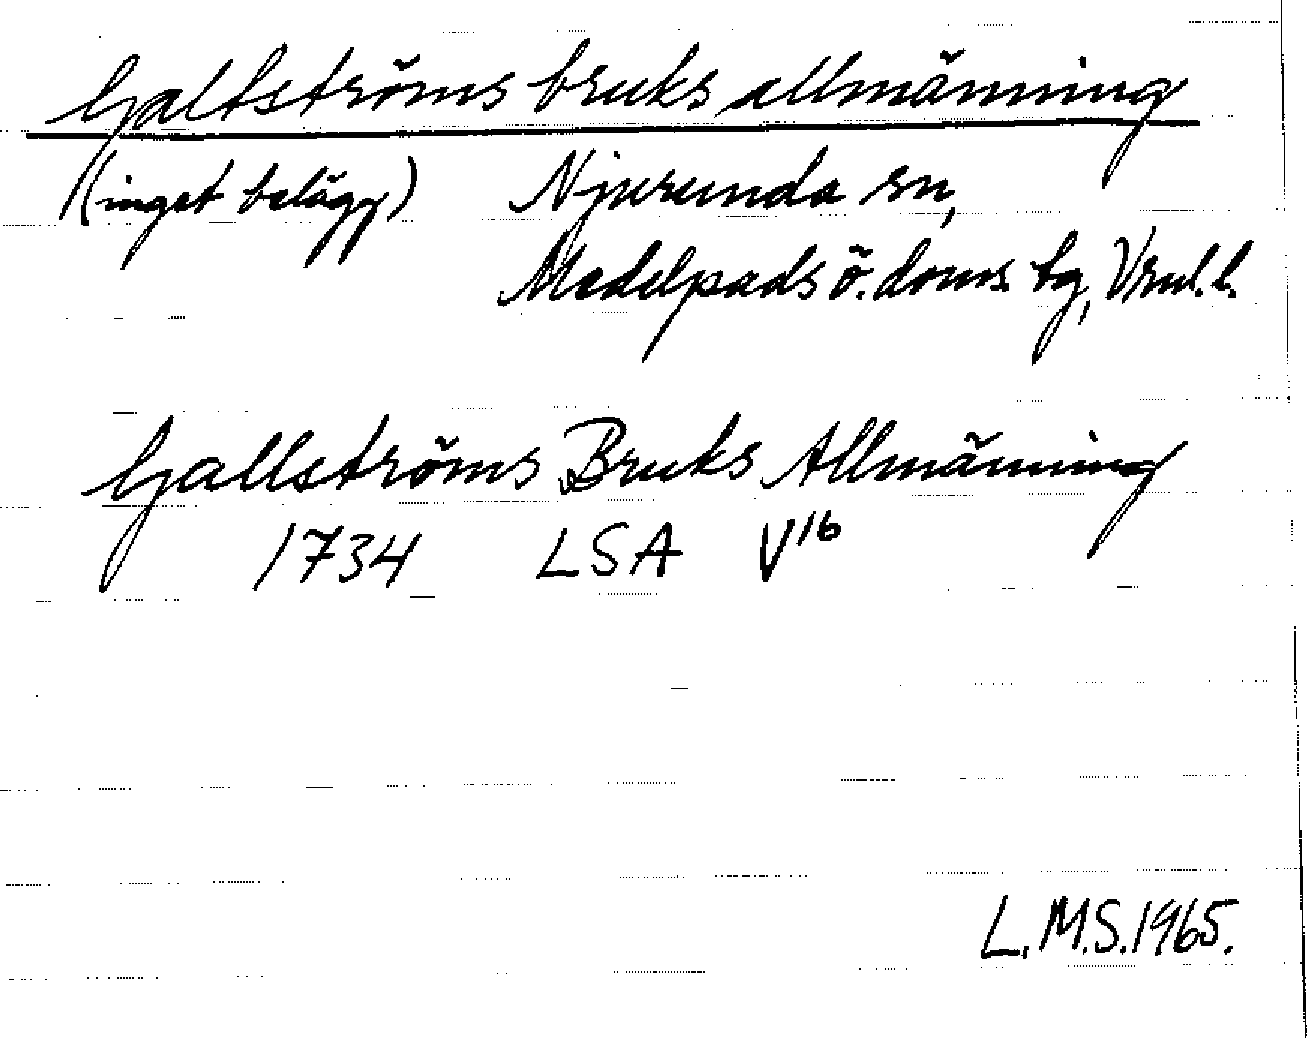 Galtströms bruks allmänning
(inget belägg) Njurunda sn,
Medelpads ö. doms. tg, Vrnl. l.
Gallströms Bruks Allmänning
1734 LSA V16
L.M.S.1965.